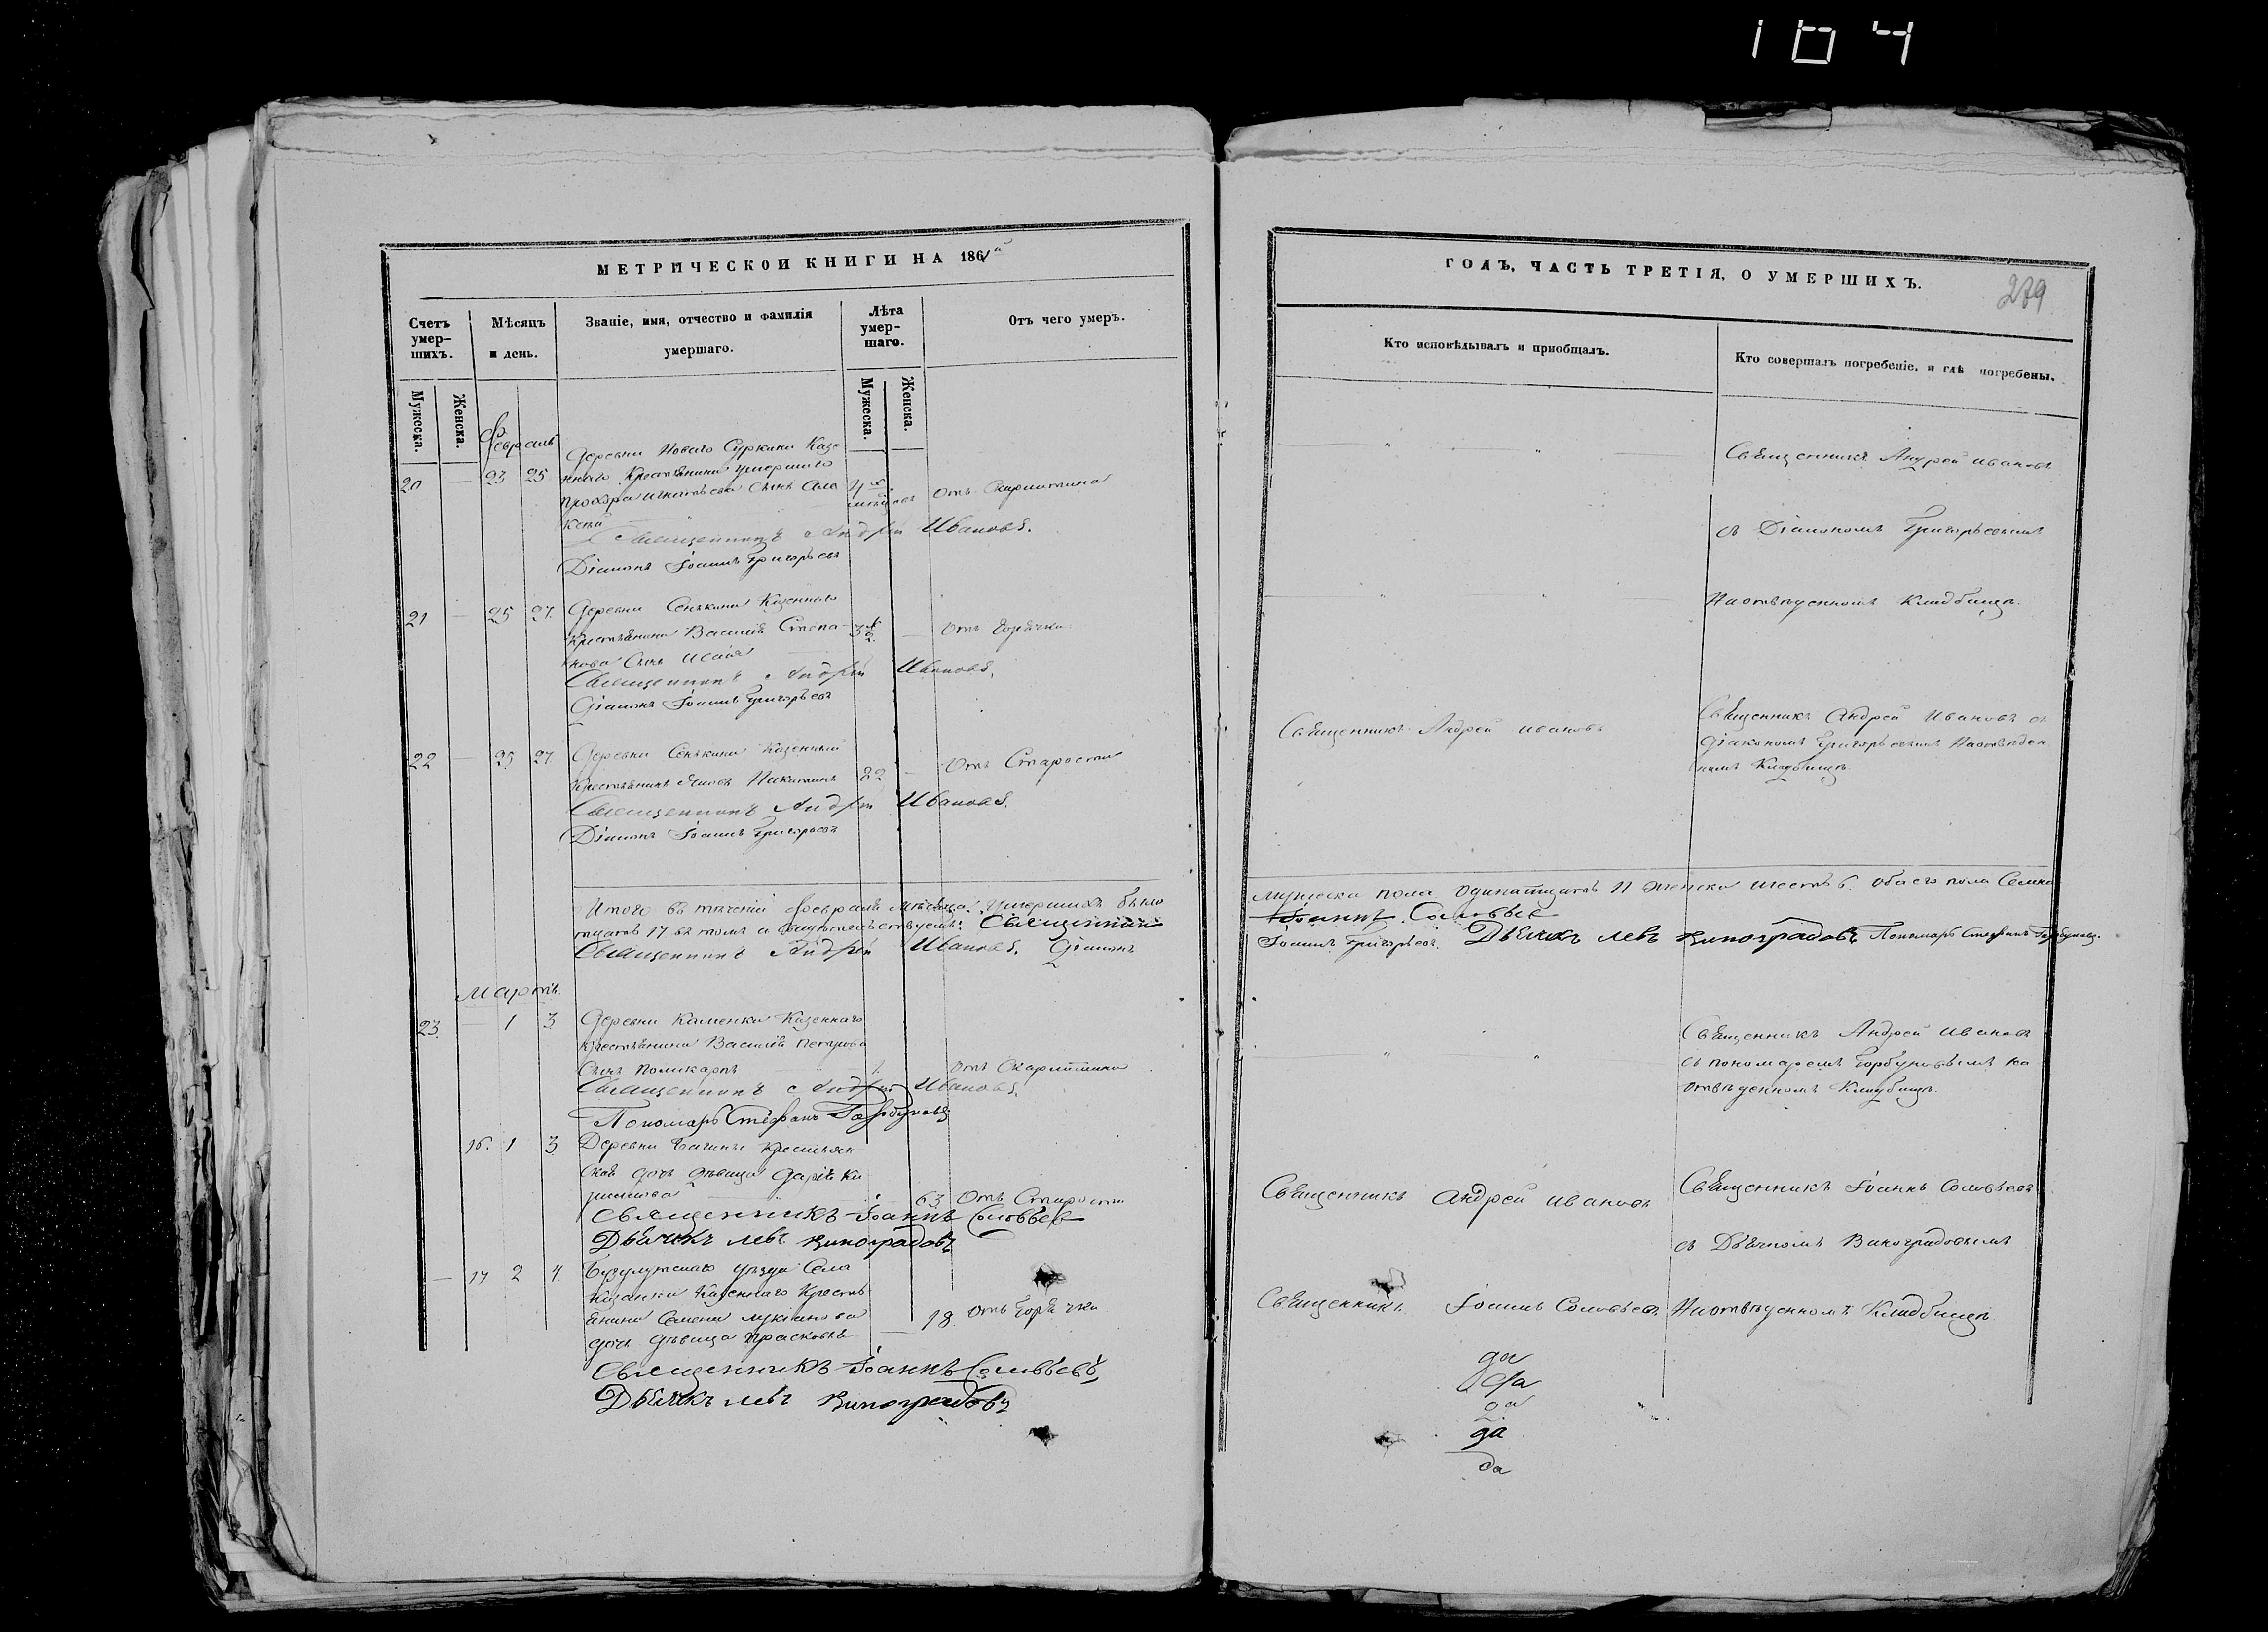 104
МЕТРИЧЕСКОЙ КНИГИ НА 1861й
Счетъ умер-
шихъ.
Мѣсяцъ
и день.
Званіе, имя, отчество и фамилія
умершаго.
Лѣта
умер-
шаго.
Отъ чего умеръ.
Мужеска.
Женска.
Мужеска.
Женска.
Февраль
20 — 23 25
Деревни Новаго Суркина Казе
ннаго Крестьянина умершаго
Прохора Игнатьева Сынъ Але
ксѣй
4х
Отъ Скарлатина
Священникъ Андрей Ивановъ.
Діаконъ Іоаннъ Григорьевъ
21 — 25 27
Деревни Сенькина Казеннаго
Крестьянина Василія Степа-
нова Сынъ
3
Отъ Горячки
Священникъ Андрей Ивановъ.
Діаконъ Іоаннъ Григорьевъ
22 — 25 27
Деревни Сенькина Казенный
Крестьянинъ Никитинъ
82
Отъ Старости
Священникъ Андрей Ивановъ.
Діаконъ Іоаннъ Григорьевъ
Итого въ теченіи Февраля мѣсяца умершихъ было
Священникъ Андрей Ивановъ. Діаконъ
Мартъ.
23. — 1 3
Деревни Каменки Казеннаго
Крестьянина Василія Петрова
Сынъ Поликарпъ
1.
Отъ Скарлатины
Священникъ Андрей Ивановъ.
Пономарь Стефанъ Горбуновъ
16. 1 3
Деревни Крестьян
ская дочь дѣвица Дарія Ки
рилова
63
Отъ Старости
Священникъ Іоаннъ Соловьевъ
Дьячекъ Левъ Виноградовъ
— 17 2 4.
Бузулукскаго уѣзда Села
Казанки Казеннаго Кресть
янина Семена Лукіанова
дочь дѣвица Прасковья
18.
Отъ Горячки
Священникъ Іоаннъ Соловьевъ,
Дьячекъ Левъ Виноградовъ
ГОДЪ, ЧАСТЬ ТРЕТІЯ, О УМЕРШИХЪ.
279
Кто исповѣдывалъ и пріобщалъ.
Кто совершалъ погребеніе, и гдѣ погребены.
Священникъ Андрей Ивановъ
съ Діакономъ Григорьевымъ
На отведенномъ Кладбищѣ.
Священникъ Андрей Ивановъ
Священникъ Андрей Ивановъ съ
Діакономъ Григорьевымъ На отведен
номъ Кладбищѣ
мужеска пола одинатцать 11 женска шесть 6. обаего пола Семна
Іоаннъ Соловьев
Іоаннъ Григорьевъ. Дьячекъ Левъ Виноградовъ Пономарь Стефанъ Горбуновъ.
Священникъ Андрей Ивановъ
съ пономаремъ Горбуновымъ на
отведенномъ Кладбищѣ.
Священникъ Андрей Ивановъ
Священникъ Іоаннъ Соловьевъ
съ Дьячкомъ Виноградовымъ
Священникъ Іоаннъ Соловьевъ
На отведенномъ Кладбищѣ
да
да
да
да
да